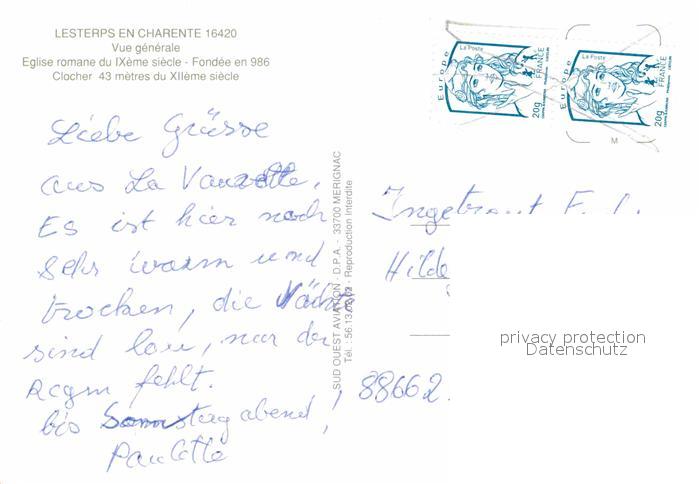 LESTERPS EN CHARENTE 16420
Vue générale
Eglise romane du IXème siècle - Fondée en 986
Clocher 43 mètres du XIIème siècle
Liebe Grüsse
aus La Vauzelle,
Es ist hier noch
sehr warm und
trocken, die Nächte
sind lau, nur der
Regen fehlt.
bis Samstag abend,
Paulette
SUD OUEST AVIATION - D.P.A. - 33700 MERIGNAC
Tél.: 56.13. - Reproduction Interdite
Europe
La Poste
FRANCE
20g
Europe
La Poste
FRANCE
20g
M
Ingetraut
Hilde
88662.
privacy protection
Datenschutz